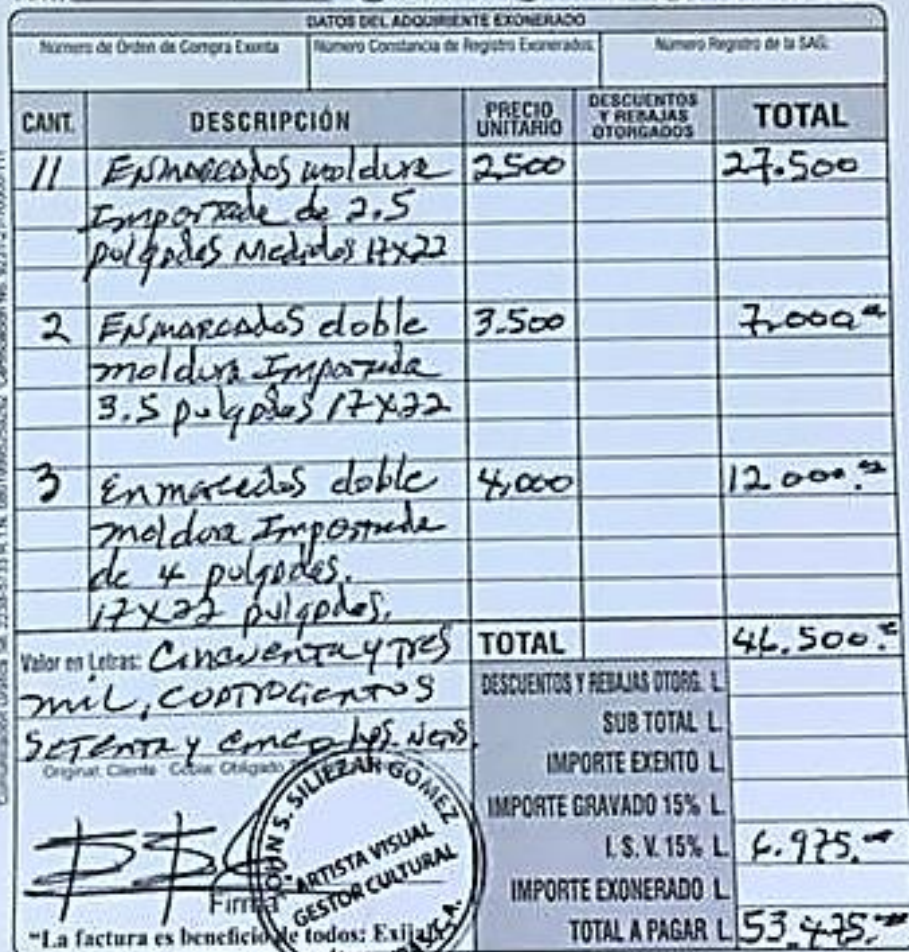 DATOS DEL ADQUIRIENTE EXONERADO
Número de Orden de Compra Exenta Número Constancia de Registro Exonerados: Número Registro de la SAG:
CANT. DESCRIPCIÓN PRECIO UNITARIO DESCUENTOS Y REBAJAS OTORGADOS TOTAL
11 Enmarcados moldura 2,500 27.500
Importada de 2.5
pulgadas Medidas 17x22
2 Enmarcados doble 3.500 7,000
moldura Importada
3.5 pulgadas 17x22
3 Enmarcados doble 4,000 12.000
moldura Importada
de 4 pulgadas.
17x22 pulgadas.
TOTAL 46.500
Valor en Letras: Cincuenta y tres
mil, cuatrocientos
setenta y cinco Lps. Netos.
Original: Cliente Copia: Obligado
DESCUENTOS Y REBAJAS OTORG. L.
SUB TOTAL L.
IMPORTE EXENTO L.
IMPORTE GRAVADO 15% L.
I.S.V. 15% L. 6.975.
IMPORTE EXONERADO L.
TOTAL A PAGAR L. 53.475.
Firma
S. SILIEZAR GOMEZ
ARTISTA VISUAL
GESTOR CULTURAL
"La factura es beneficio de todos: Exija